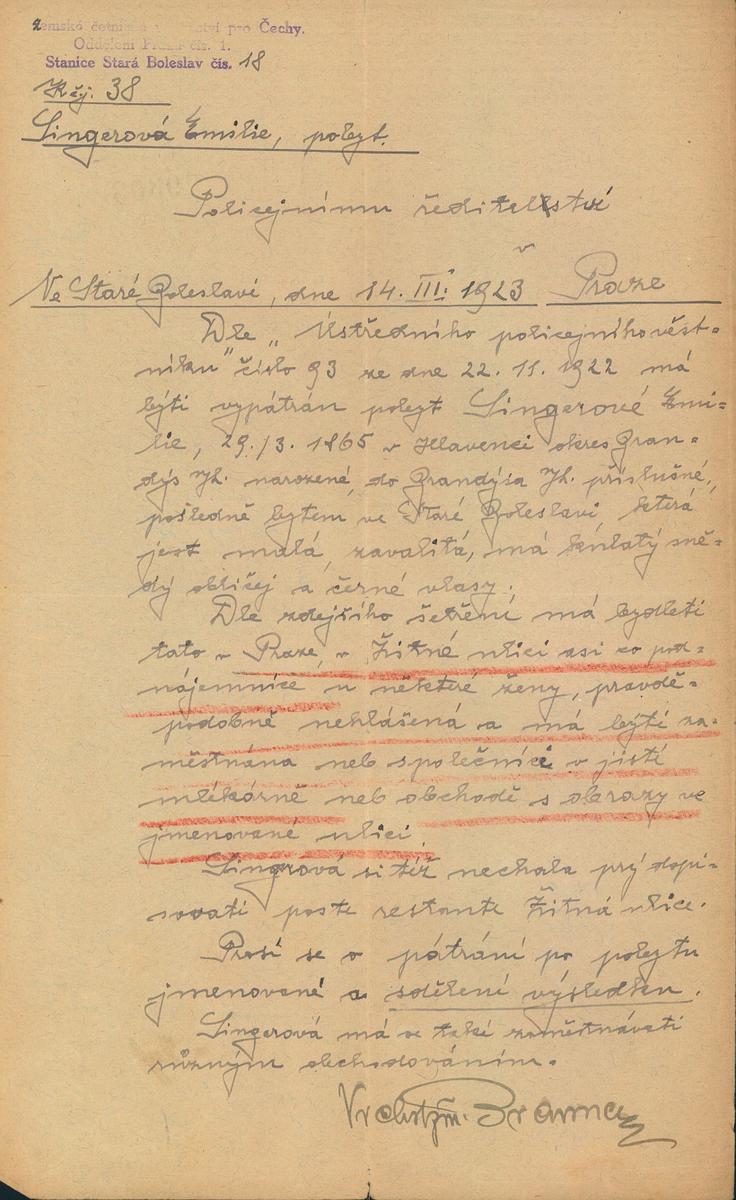 Zemské četnické velitelství pro Čechy.
Oddělení Praha čís. 1.
Stanice Stará Boleslav čís. 18
K čj. 38
Singerová Emilie, pobyt.
Policejnímu ředitelství
v
Ve Staré Boleslavi, dne 14. III. 1923 Praze
Dle „Ústředního policejního věst-
níku" číslo 93 ze dne 22. 11. 1922 má
býti vypátrán pobyt Singerové Emi-
lie, 29./3. 1865 v Hlavenci okres Bran-
dýs n/L. narozené, do Brandýsa n/L. příslušné,
posledně bytem ve Staré Boleslavi, která
jest malá, zavalitá, má kulatý sně-
dý obličej a černé vlasy.
Dle zdejšího šetření má bydleti
tato v Praze, v Žitné ulici asi co pod-
nájemnice u některé ženy, pravdě-
podobně nehlášená a má býti za-
městnána neb společnicí v jisté
mlékárně neb obchodě s obrazy ve
jmenované ulici.
Singrová si též nechala prý dopi-
sovati poste restante Žitná ulice.
Prosí se o pátrání po pobytu
jmenované a sdělení výsledku.
Singerová má se také zaměstnávati
různým obchodováním.